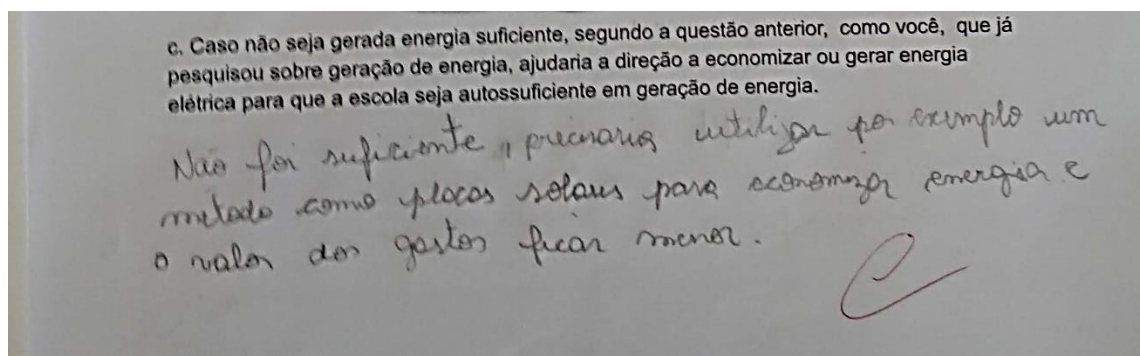 c. Caso não seja gerada energia suficiente, segundo a questão anterior, como você, que já
pesquisou sobre geração de energia, ajudaria a direção a economizar ou gerar energia
elétrica para que a escola seja autossuficiente em geração de energia.
Não foi suficiente, precisaria utilizar por exemplo um
metodo como placas solares para economizar energia e
o valor dos gastos ficar menor.
C